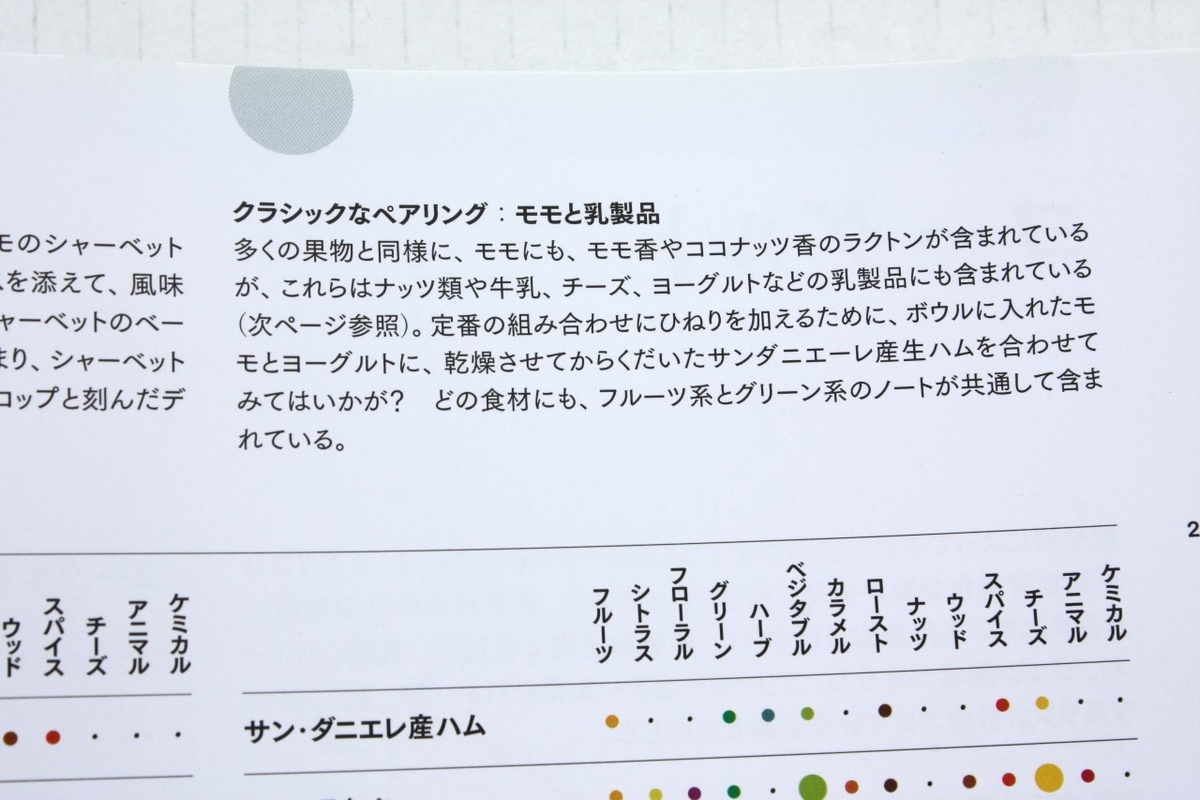 モのシャーベット
を添えて、風味
ャーベットのベー
まり、シャーベット
ロップと刻んだデ
クラシックなペアリング：モモと乳製品
多くの果物と同様に、モモにも、モモ香やココナッツ香のラクトンが含まれている
が、これらはナッツ類や牛乳、チーズ、ヨーグルトなどの乳製品にも含まれている
（次ページ参照）。定番の組み合わせにひねりを加えるために、ボウルに入れたモ
モとヨーグルトに、乾燥させてからくだいたサンダニエーレ産生ハムを合わせて
みてはいかが？　どの食材にも、フルーツ系とグリーン系のノートが共通して含ま
れている。
2
ウッド
スパイス
チーズ
アニマル
ケミカル
フルーツ
シトラス
フローラル
グリーン
ハーブ
ベジタブル
カラメル
ロースト
ナッツ
ウッド
スパイス
チーズ
アニマル
ケミカル
サン・ダニエレ産ハム